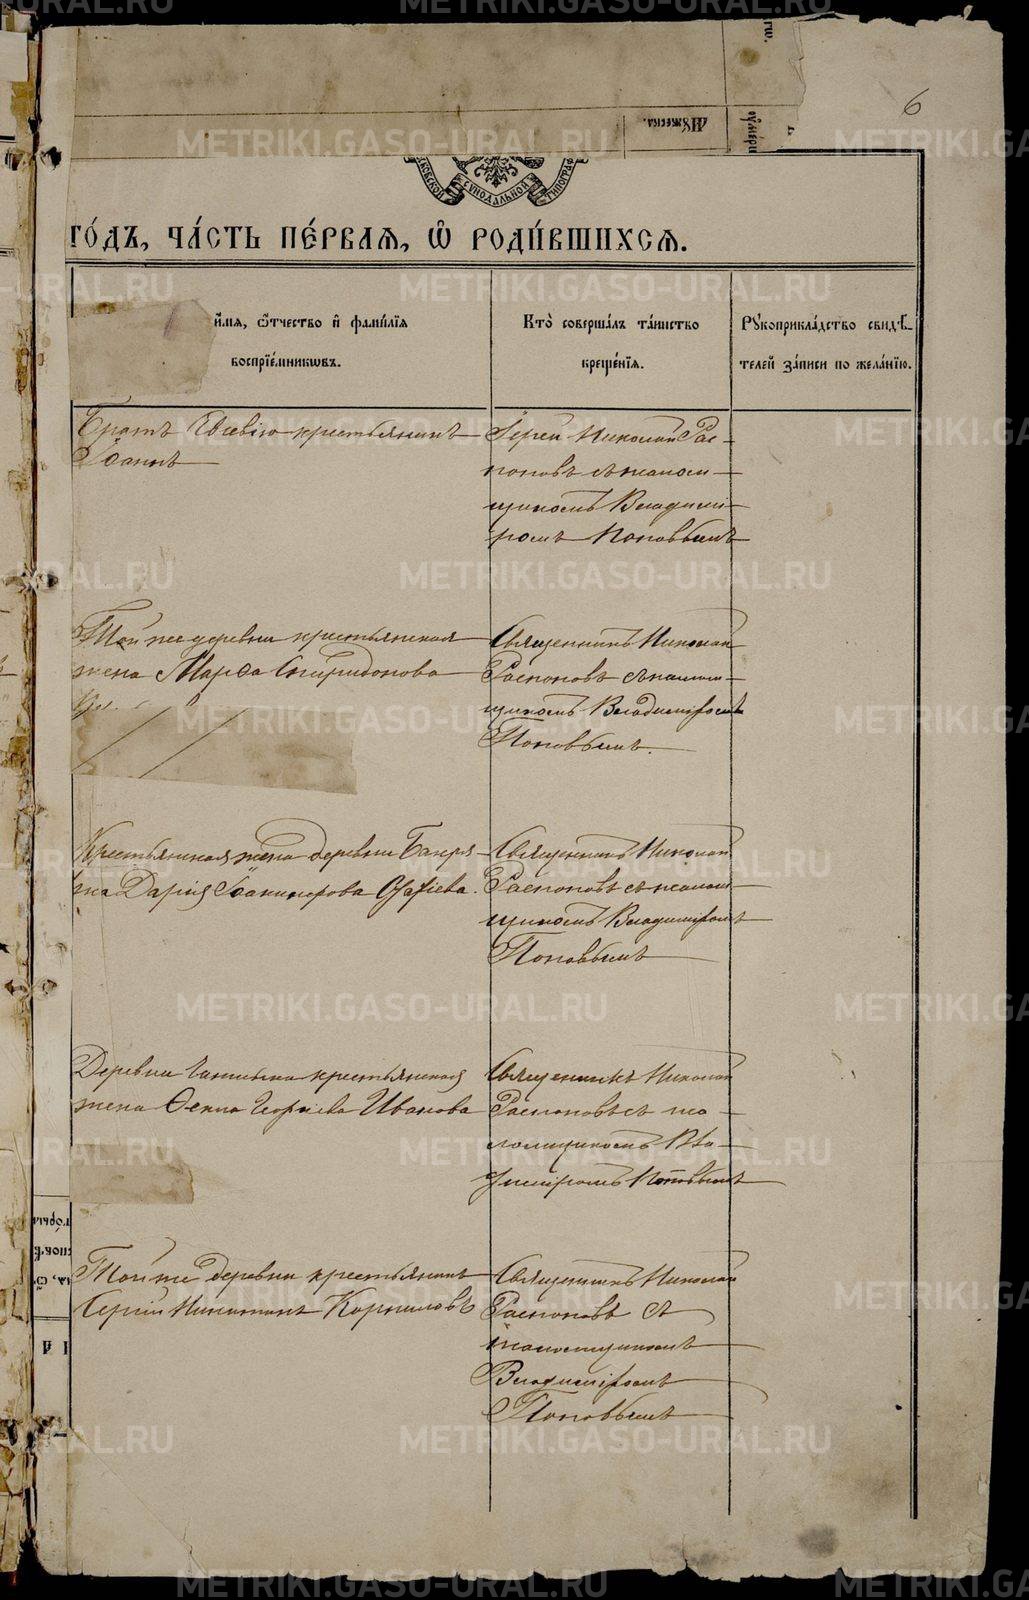 6
МꙊЖЕСКА.
МОСКОВСКОЙ СѴНОДАЛЬНОЙ ТИПОГРАФ
ГО́ДЪ, ЧА́СТЬ ПЕ́РВАѦ, Ѽ РОДИ́ВШИХСѦ.
и҆́мѧ, ѻ҆́тчество и҆ фами́лїѧ
воспрїе́мникѡвъ.
Кто̀ соверша́лъ та́инство
креще́нїѧ.
Рꙋкоприкла́дство свидѣ́-
телей за́писи по жела́нїю.
Братъ Евсевію крестьянинъ
Іоаннъ
Іерей Николай Рас-
поповъ съ псаломщ-
щикомъ Владимі-
ромъ Поповымъ
Той же деревни крестьянская
жена Марѳа Спиридонова
Священникъ Николай
Распоповъ съ псалом-
щикомъ Владиміромъ
Поповымъ.
Крестьянская жена деревни
на Дарія
Священникъ Николай
Распоповъ съ псалом-
щикомъ Владиміромъ
Поповымъ
Деревни крестьянская
жена Ѳекла Георгіева Иванова
Священникъ Николай
Распоповъ съ пса-
ломщикомъ Вла-
диміромъ Поповымъ
Той же деревни крестьянинъ
Сергій Никитинъ Корниловъ
Священникъ Николай
Распоповъ съ
псаломщикомъ
Владиміромъ
Поповымъ
METRIKI.GASO-URAL.RU